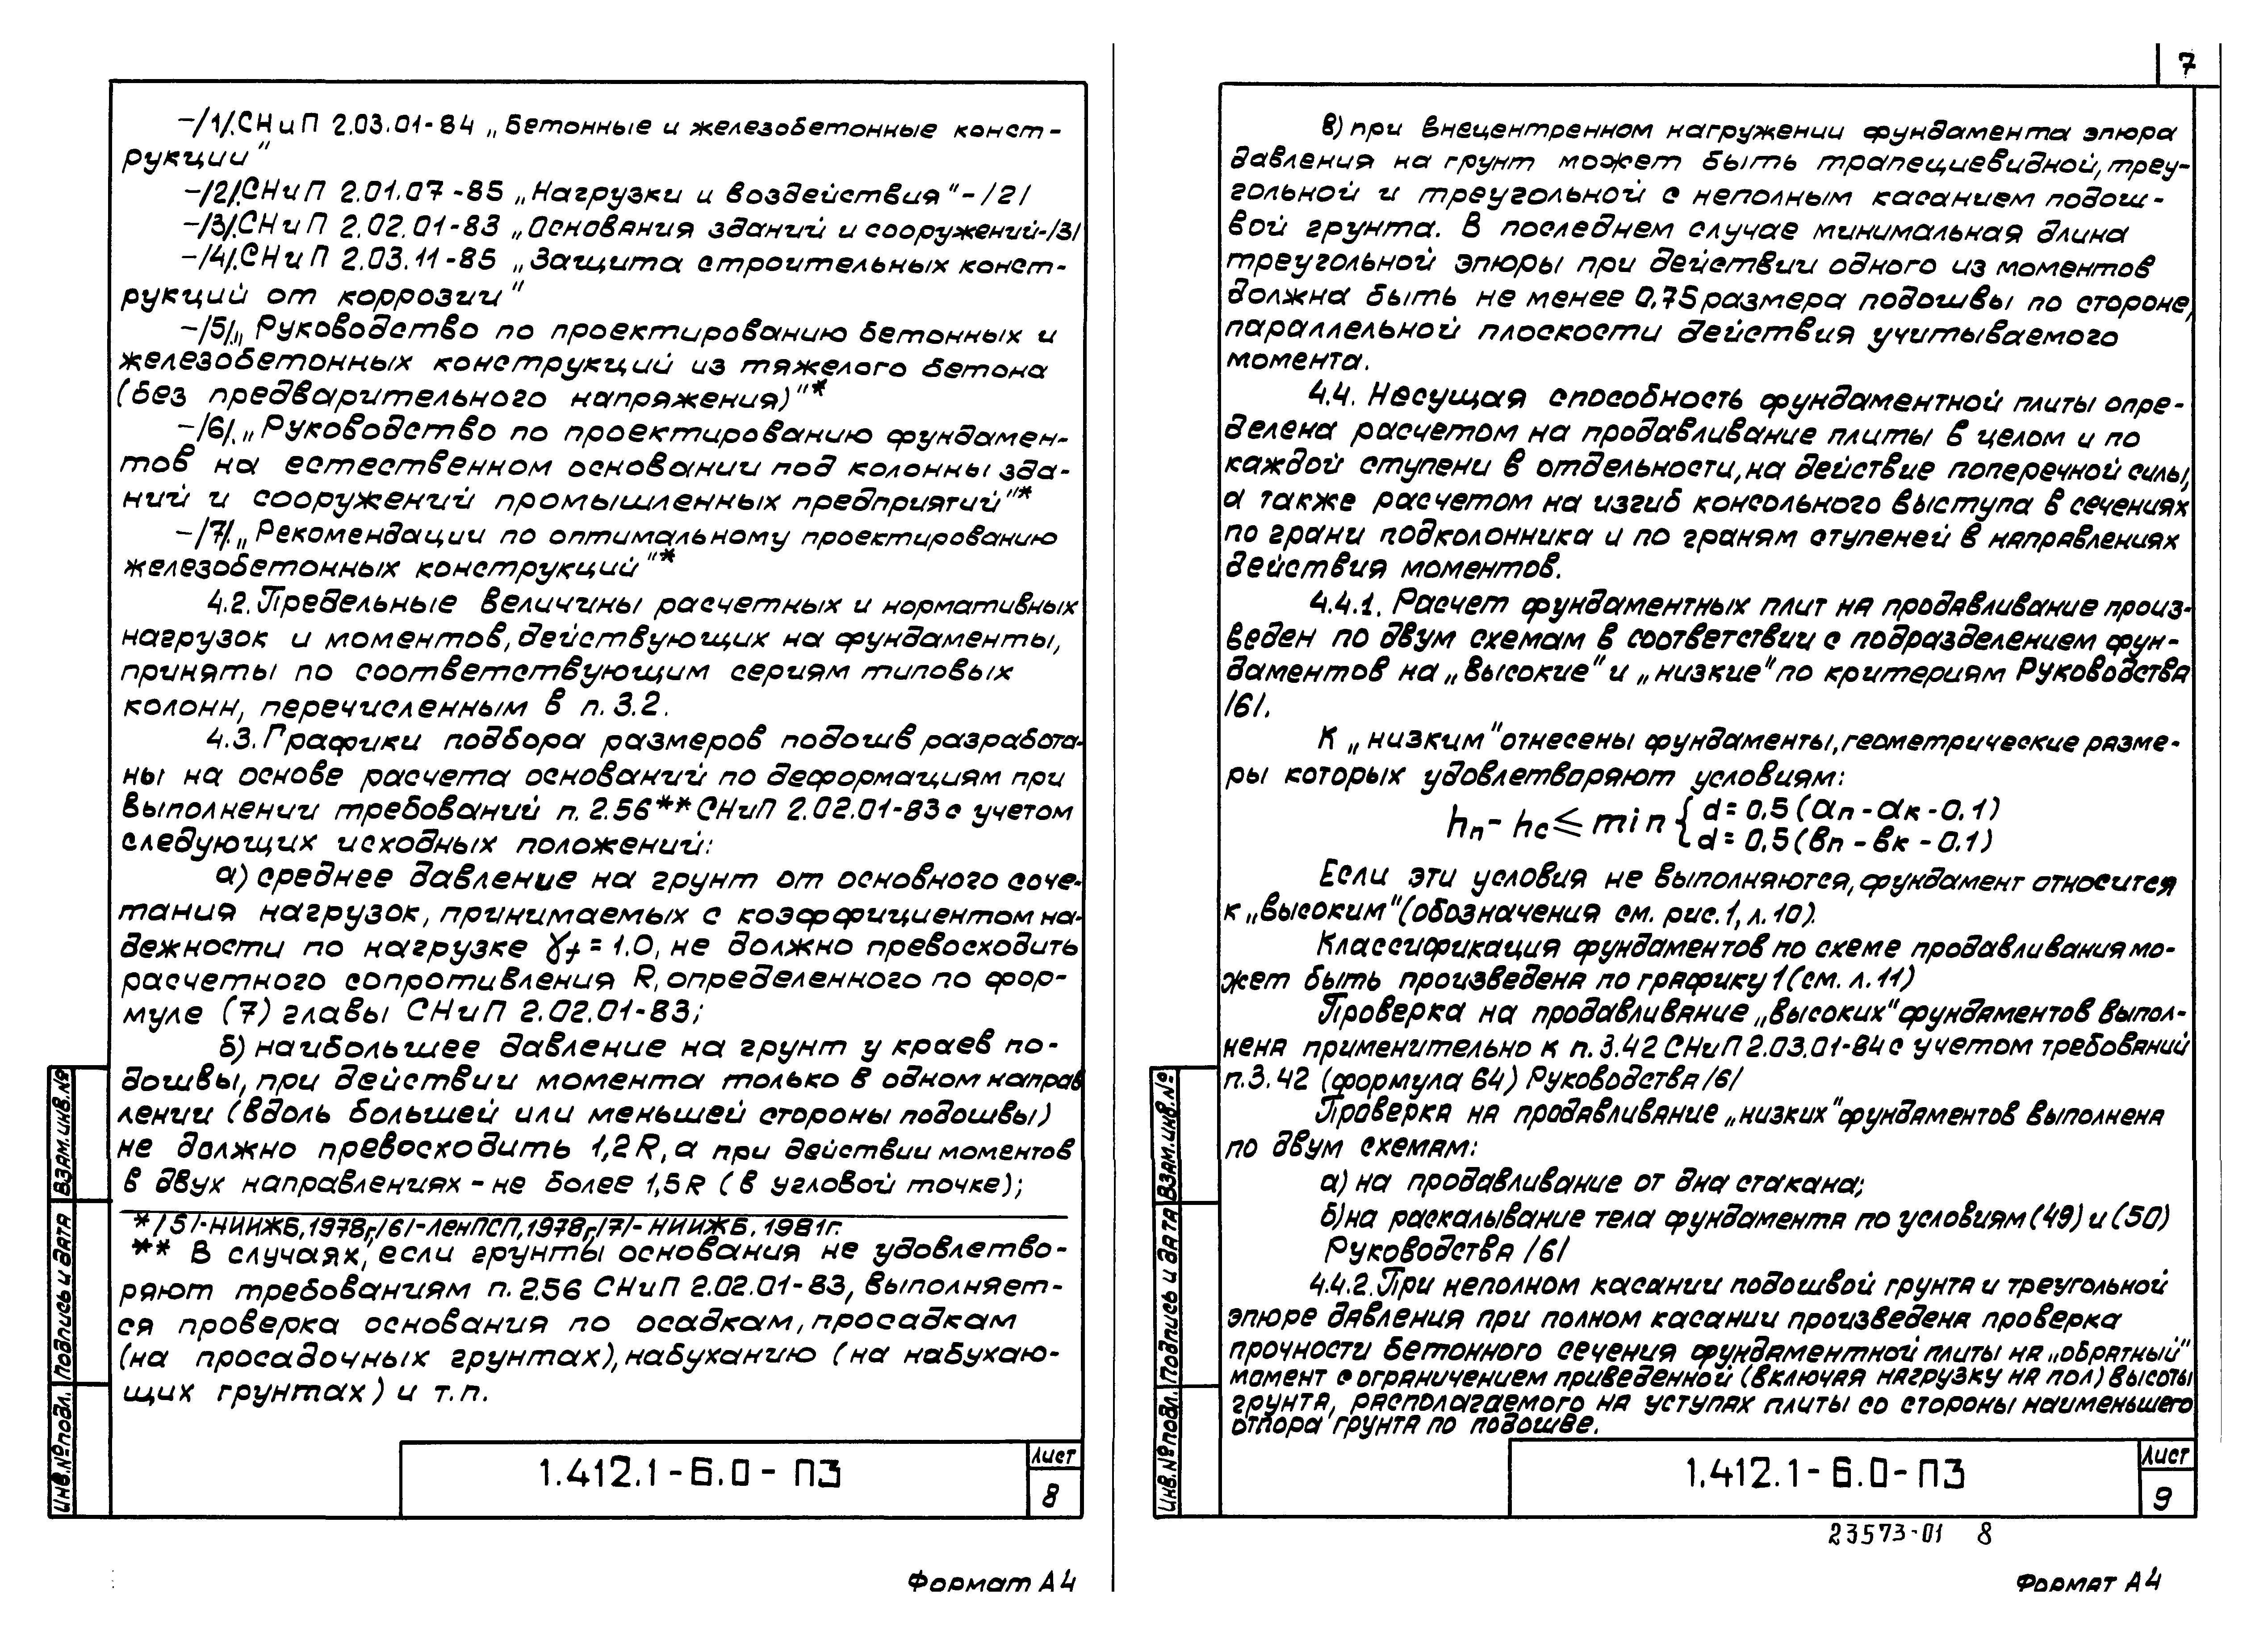 -/1/.СНиП 2.03.01-84 „Бетонные и железобетонные конст-
рукции"
-/2/.СНиП 2.01.07-85 „Нагрузки и воздействия"-/2/
-/3/.СНиП 2.02.01-83 „Основания зданий и сооружений-/3/
-/4/.СНиП 2.03.11-85 „Защита строительных конст-
рукций от коррозии"
-/5/„Руководство по проектированию бетонных и
железобетонных конструкций из тяжелого бетона
(без предварительного напряжения)"*
-/6/.„Руководство по проектированию фундамен-
тов на естественном основании под колонны зда-
ний и сооружений промышленных предприятий"*
-/7/.„Рекомендации по оптимальному проектированию
железобетонных конструкций"*
4.2. Предельные величины расчетных и нормативных
нагрузок и моментов, действующих на фундаменты,
приняты по соответствующим сериям типовых
колонн, перечисленным в п. 3.2.
4.3. Графики подбора размеров подошв разработа-
ны на основе расчета оснований по деформациям при
выполнении требований п. 2.56** СНиП 2.02.01-83 с учетом
следующих исходных положений:
а) среднее давление на грунт от основного соче-
тания нагрузок, принимаемых с коэффициентом на-
дежности по нагрузке γf = 1.0, не должно превосходить
расчетного сопротивления R, определенного по фор-
муле (7) главы СНиП 2.02.01-83;
б) наибольшее давление на грунт у краев по-
дошвы, при действии момента только в одном направ
лении (вдоль большей или меньшей стороны подошвы)
не должно превосходить 1,2 R, а при действии моментов
в двух направлениях - не более 1,5 R (в угловой точке);
*/5/-НИИЖБ,1978г,/6/-ЛенПСП,1978г,/7/-НИИЖБ. 1981г.
** В случаях, если грунты основания не удовлетво-
ряют требованиям п. 2.56 СНиП 2.02.01-83, выполняет-
ся проверка основания по осадкам, просадкам
(на просадочных грунтах), набуханию (на набухаю-
щих грунтах) и т.п.
Взам.инв.№
Подпись и дата
Инв.№подл.
1.412.1-6.0-ПЗ
Лист
8
Формат А4
7
в) при внецентренном нагружении фундамента эпюра
давления на грунт может быть трапециевидной, треу-
гольной и треугольной с неполным касанием подош-
вой грунта. В последнем случае минимальная длина
треугольной эпюры при действии одного из моментов
должна быть не менее 0,75 размера подошвы по стороне,
параллельной плоскости действия учитываемого
момента.
4.4. Несущая способность фундаментной плиты опре-
делена расчетом на продавливание плиты в целом и по
каждой ступени в отдельности, на действие поперечной силы,
а также расчетом на изгиб консольного выступа в сечениях
по грани подколонника и по граням ступеней в направлениях
действия моментов.
4.4.1. Расчет фундаментных плит на продавливание произ-
веден по двум схемам в соответствии с подразделением фун-
даментов на „высокие" и „низкие" по критериям Руководства
/6/.
К „низким" отнесены фундаменты, геометрические разме-
ры которых удовлетворяют условиям:
hп - hс ≤ min { d = 0,5 (aп - aк - 0.1)
d = 0,5 (вп - вк - 0.1)
Если эти условия не выполняются, фундамент относится
к „высоким" (обозначения см. рис.1, л.10).
Классификация фундаментов по схеме продавливания мо-
жет быть произведена по графику 1 (см. л. 11)
Проверка на продавливание „высоких" фундаментов выпол-
нена применительно к п. 3.42 СНиП 2.03.01-84 с учетом требований
п.3.42 (формула 64) Руководства /6/
Проверка на продавливание „низких" фундаментов выполнена
по двум схемам:
а) на продавливание от дна стакана;
б) на раскалывание тела фундамента по условиям (49) и (50)
Руководства /6/
4.4.2. При неполном касании подошвой грунта и треугольной
эпюре давления при полном касании произведена проверка
прочности бетонного сечения фундаментной плиты на „обратный"
момент с ограничением приведенной (включая нагрузку на пол) высоты
грунта, располагаемого на уступах плиты со стороны наименьшего
отпора грунта по подошве.
Взам.инв.№
Подпись и дата
Инв.№подл.
1.412.1-6.0-ПЗ
Лист
9
23573-01 8
Формат А4